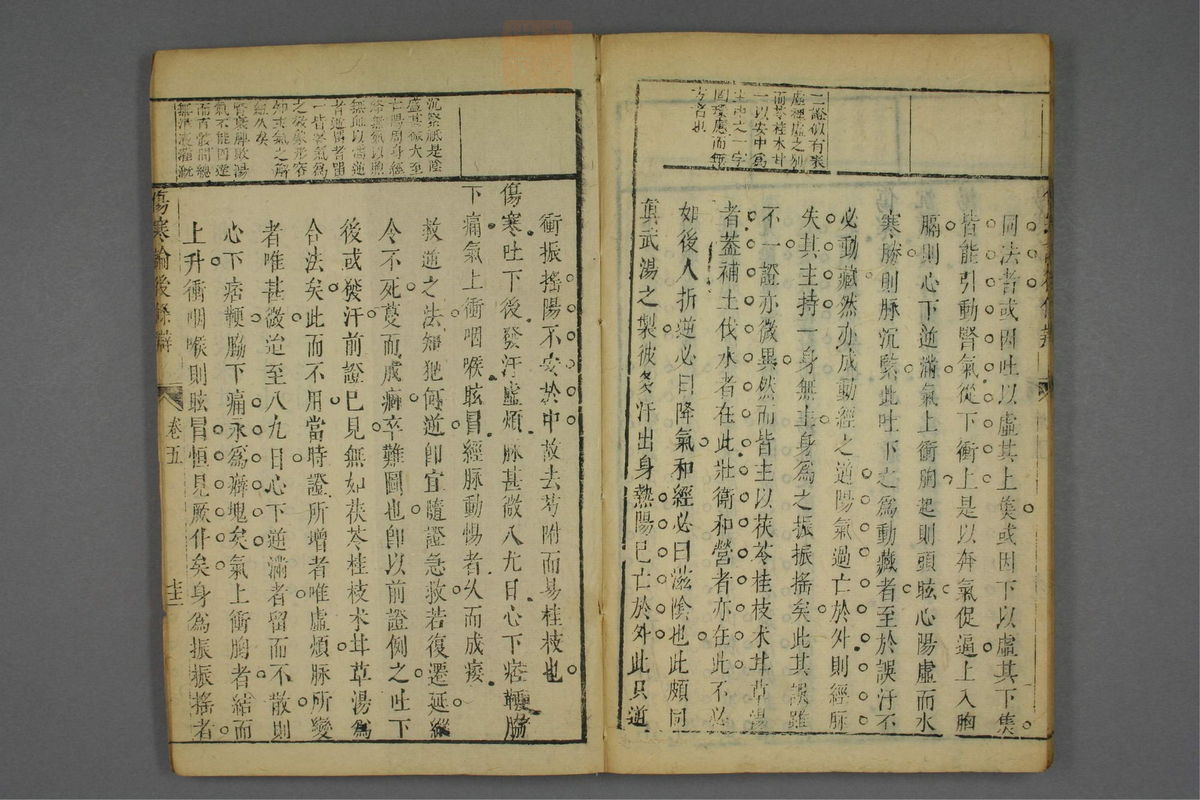 二證似有表
虛裡虛之別
而苓桂术甘
一以安中爲
主中之一字
因環應而無
方者也
同法者或因吐以虛其上隻或因下以虛其下隻
皆能引動腎氣從下衝上是以奔氣促逼上入胸
膈則心下逆滿氣上衝胸起則頭眩心陽虛而水
寒勝則脈沉緊此吐下之爲動藏者至於誤汗不
必動藏然亦成動經之逆陽氣過亡於外則經脈
失其主持一身無主身爲之振振搖矣此其誤雖
不一證亦微異然而皆主以茯苓桂枝术甘草湯
者蓋補土伐水者在此壯衛和營者亦在此不必
如後人折逆必曰降氣和經必曰滋陰也此頗同
眞武湯之製彼多汗出身熱陽已亡於外此只逆
沉緊脈是陰
盛甚振大至
亡陽周身經
絡無氣以煦
無血以濡逆
者逆傷者留
一皆寒氣爲
之發象形容
如
衝振搖陽不安於中故去芍附而易桂枝也
傷寒吐下後發汗虛煩脈甚微八九日心下痞鞕脇
下痛氣上衝咽喉眩冒經脈動惕者久而成痿
救逆之法知犯何逆卽宜隨證急救若復遷延縱
令不死蔓而成痼卒難圖也卽以前證例之吐下
後或發汗前證已見無如茯苓桂枝术甘草湯爲
合法矣此而不用當時證所增者唯虛煩脈所變
者唯甚微迨至八九日心下逆滿者留而不散則
心下痞鞕脇下痛永爲癖塊矣氣上衝胸者結而
上升衝咽喉則眩冒恒見厥仆矣身爲振振搖者
傷寒論後條辯
卷五